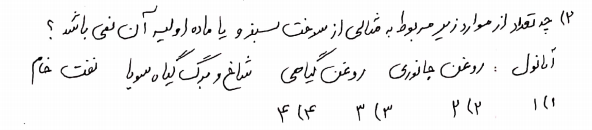 ۲) چه تعداد از موارد زیر مربوط به مثالی از سوخت سبز و یا ماده اولیه آن نمی باشد ؟
اتانول : روغن جانوری روغن گیاهی شاخ و برگ گیاه سویا نفت خام
۱) ۱ ۲) ۲ ۳) ۳ ۴) ۴